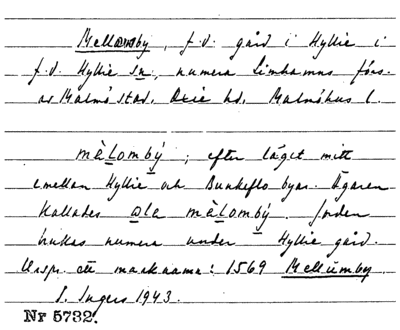 Mellomby, f.d. gård i Hyllie i
f.d. Hyllie sn, numera Limhamns förs.
av Malmö stad. Oxie hd. Malmöhus l.
màlombý; efter läget mitt
emellan Hyllie och Bunkeflo byar. Ägaren
kallades ola màlombý. Jorden
brukas numera under Hyllie gård.
Urspr. ett marknamn: 1569 Mellumby
I. Ingers 1943.
Nr 5732.